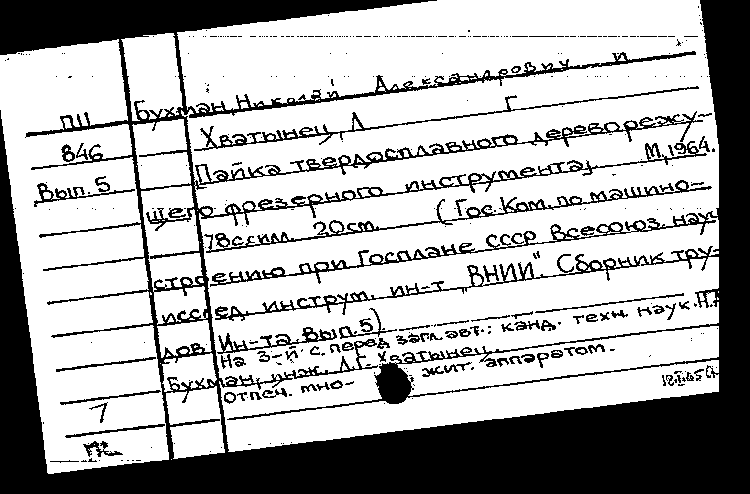 Бухман, Николай Александрович и
П11
Хватынец, Л Г
846
Пайка твердосплавного дереворежу-
Вып. 5
щего фрезерного инструмента. М, 1964.
78с силл. 20см. (Гос. Ком. по машино-
строению при Госплане СССР Всесоюз. науч
исслед. инструм. ин-т "ВНИИ". Сборник тру-
дов Ин-та. Вып. 5)
На 3-й с. перед загл. авт.: канд. техн. наук. Н.А
Бухман, инж. Л.Г. Хватынец.
Отпеч. мно- жит. аппаратом.
7